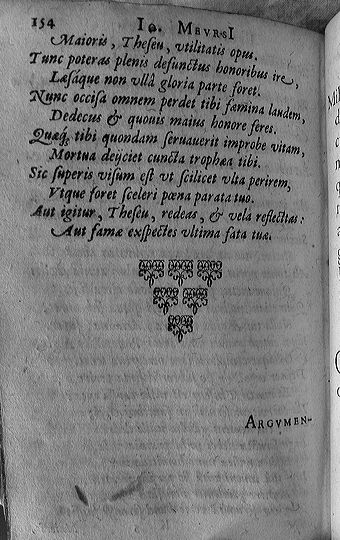 154 Io. MEVRSI
Maioris, Theseu, vtilitatis opus.
Tunc poteras plenis defunctus honoribus ire,
Læsáque non vllâ gloria parte foret.
Nunc occisa omnem perdet tibi fæmina laudem,
Dedecus & quouis maius honore feres.
Quæq; tibi quondam seruauerit improbe vitam,
Mortua deijciet cuncta trophæa tibi.
Sic superis visum est vt scilicet vlta perirem,
Vtque foret sceleri pœna parata tuo.
Aut igitur, Theseu, redeas, & vela reflectas:
Aut famæ exspectes vltima fata tuæ.
ARGVMEN-